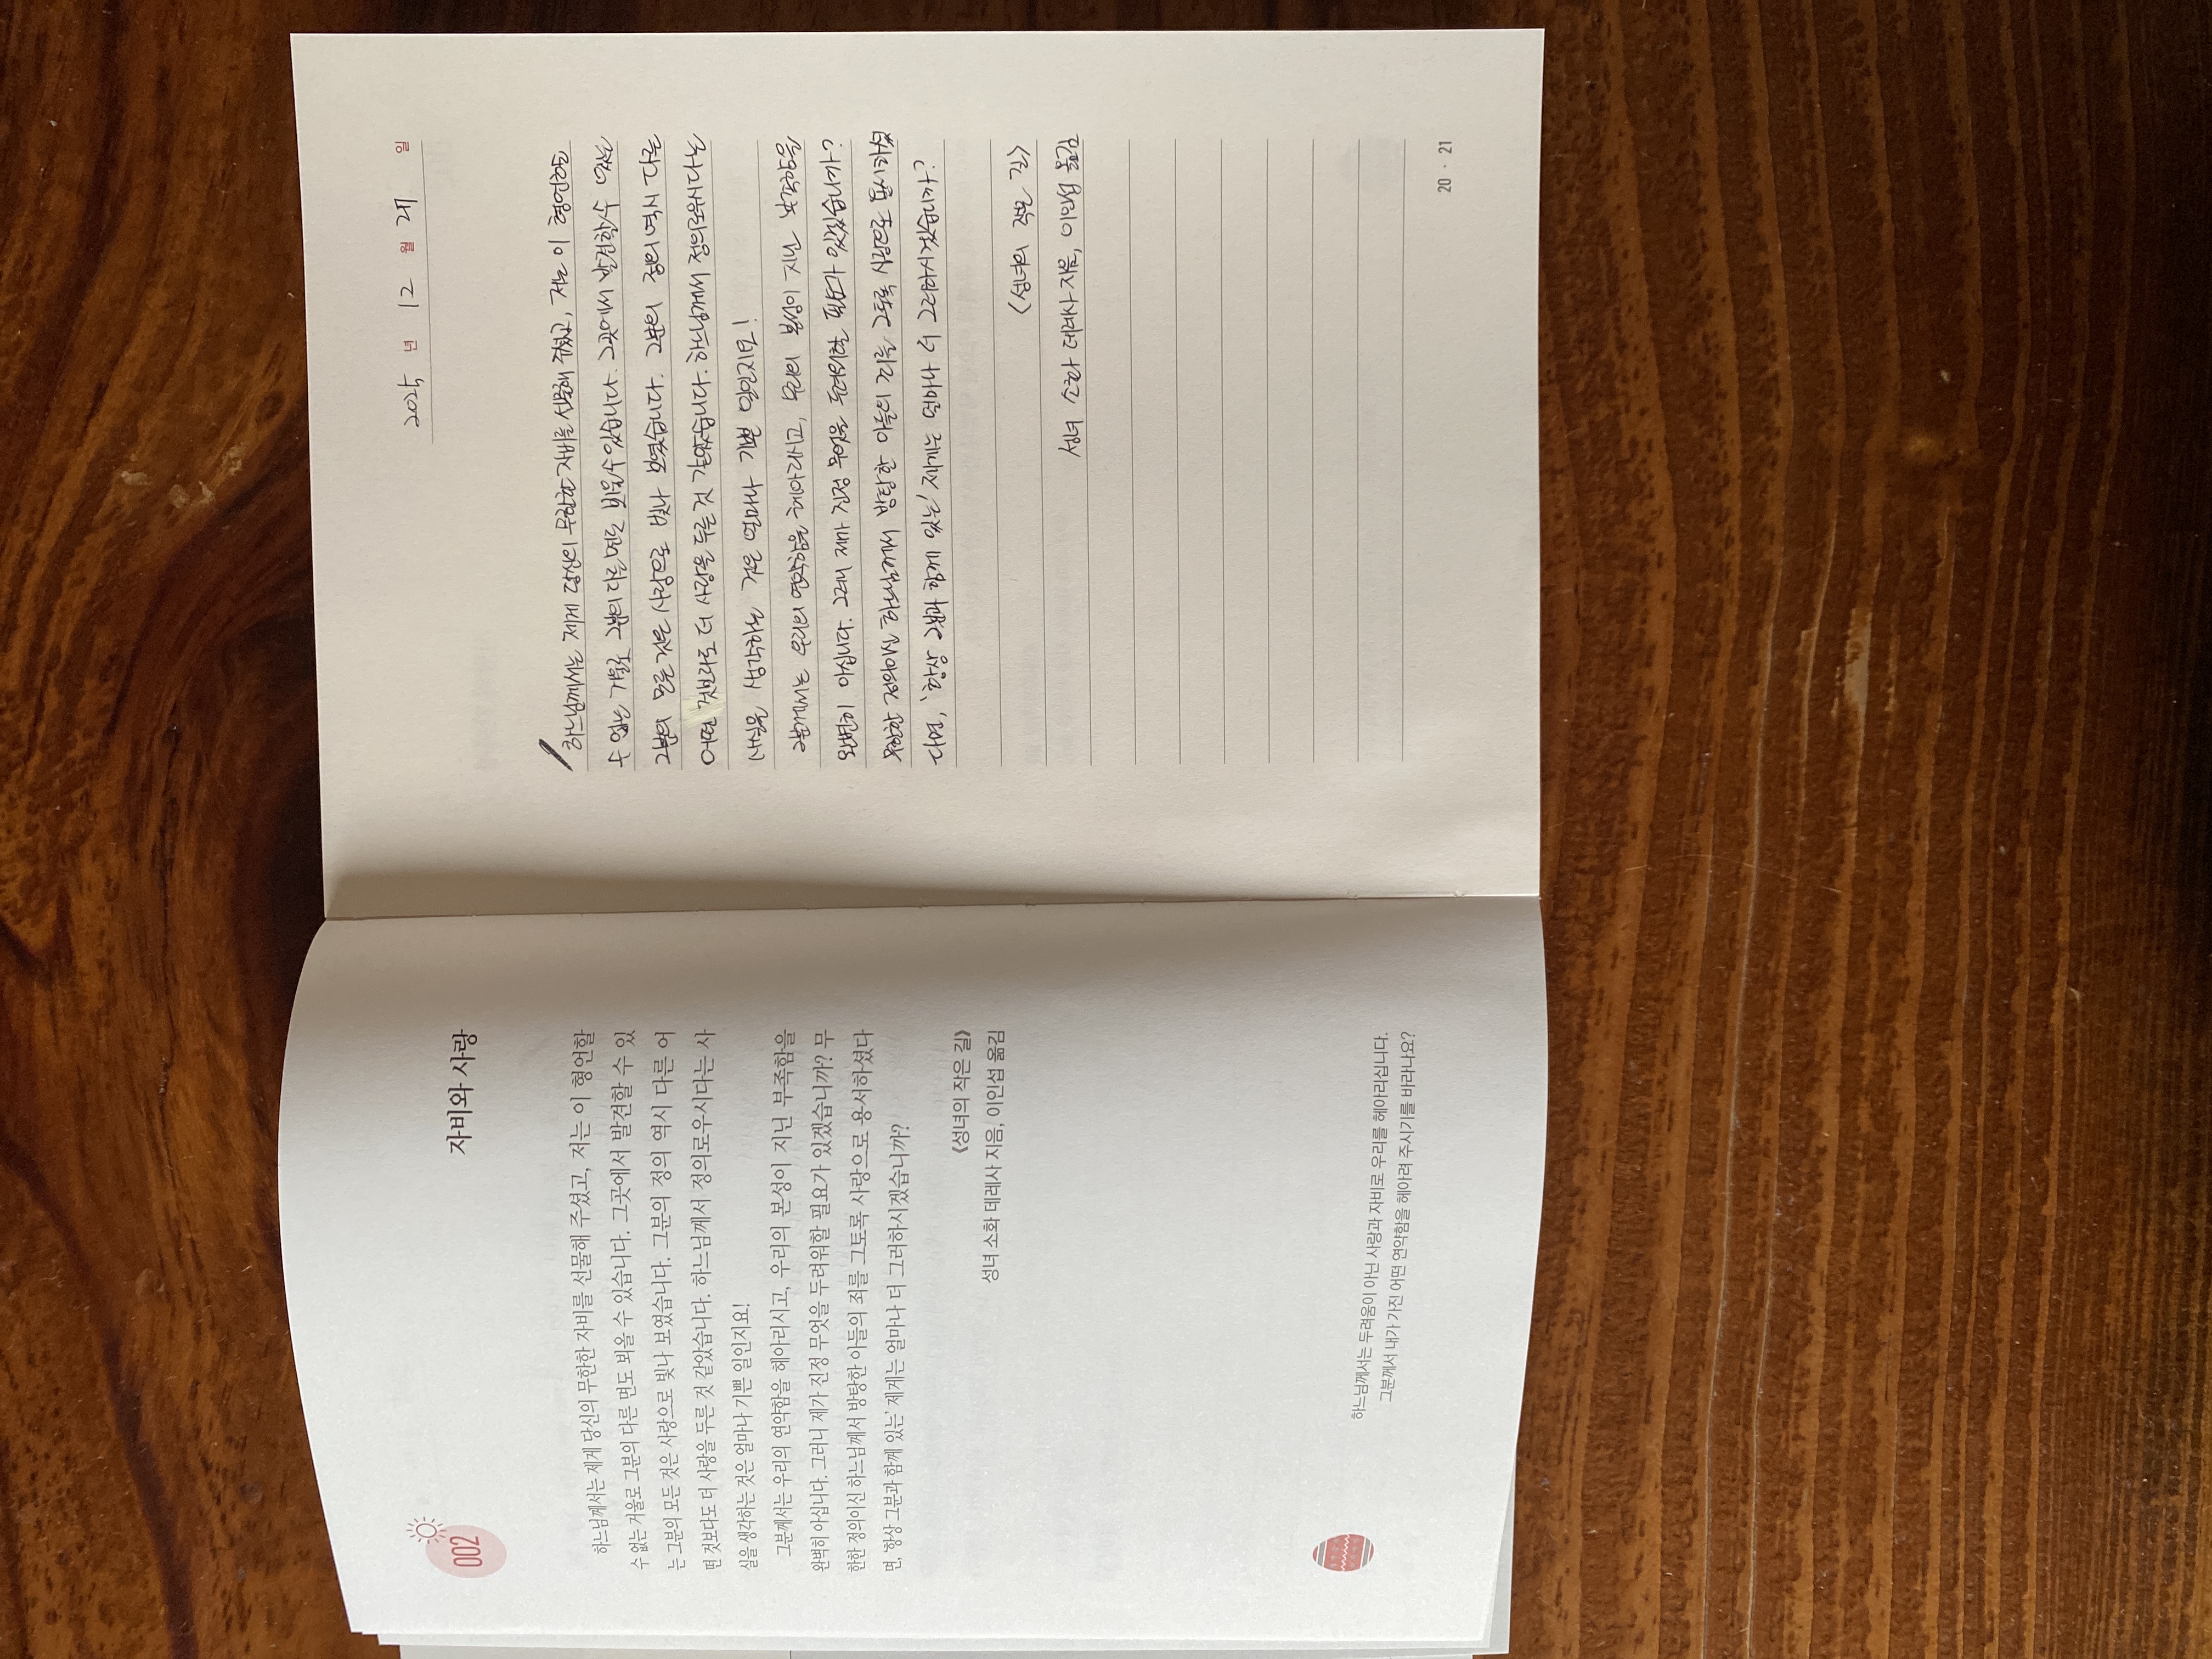 002
자비와 사랑
하느님께서는 제게 당신의 무한한 자비를 선물해 주셨고, 저는 이 형언할
수 없는 거울로 그분의 다른 면도 뵈올 수 있습니다. 그곳에서 발견할 수 있
는 그분의 모든 것은 사랑으로 빛나 보였습니다. 그분의 정의 역시 다른 어
떤 것보다도 더 사랑을 두른 것 같았습니다. 하느님께서 정의로우시다는 사
실을 생각하는 것은 얼마나 기쁜 일인지요!
그분께서는 우리의 연약함을 헤아리시고, 우리의 본성이 지닌 부족함을
완벽히 아십니다. 그러니 제가 진정 무엇을 두려워할 필요가 있겠습니까? 무
한한 정의이신 하느님께서 방탕한 아들의 죄를 그토록 사랑으로 용서하셨다
면, ‘항상 그분과 함께 있는’ 제게는 얼마나 더 그러하시겠습니까?
《성녀의 작은 길》
성녀 소화 데레사 지음, 이인섭 옮김
하느님께서는 두려움이 아닌 사랑과 자비로 우리를 헤아리십니다.
그분께서 내가 가진 어떤 연약함을 헤아려 주시기를 바라나요?
2025 년 12 월 24 일
하느님께서는 제게 당신의 무한한 자비를 선물해 주셨고, 저는 이 형언할
수 없는 거울로 그분의 다른 면도 뵈올 수 있습니다. 그곳에서 발견할 수 있는
그분의 모든 것은 사랑으로 빛나 보였습니다. 그분의 정의 역시 다른
어떤 것보다도 더 사랑을 두른 것 같았습니다. 하느님께서 정의로우시다는
사실을 생각하는 것은 얼마나 기쁜 일인지요!
그분께서는 우리의 연약함을 헤아리시고, 우리의 본성이 지닌 부족함을
완벽히 아십니다. 그러니 제가 진정 무엇을 두려워할 필요가 있겠습니까?
무한한 정의이신 하느님께서 방탕한 아들의 죄를 그토록 사랑으로 용서하셨
다면, ‘항상 그분과 함께 있는’ 제게는 얼마나 더 그러하시겠습니까?
<성녀의 작은 길>
성녀 소화 데레사 지음, 이인섭 옮김
20 · 21